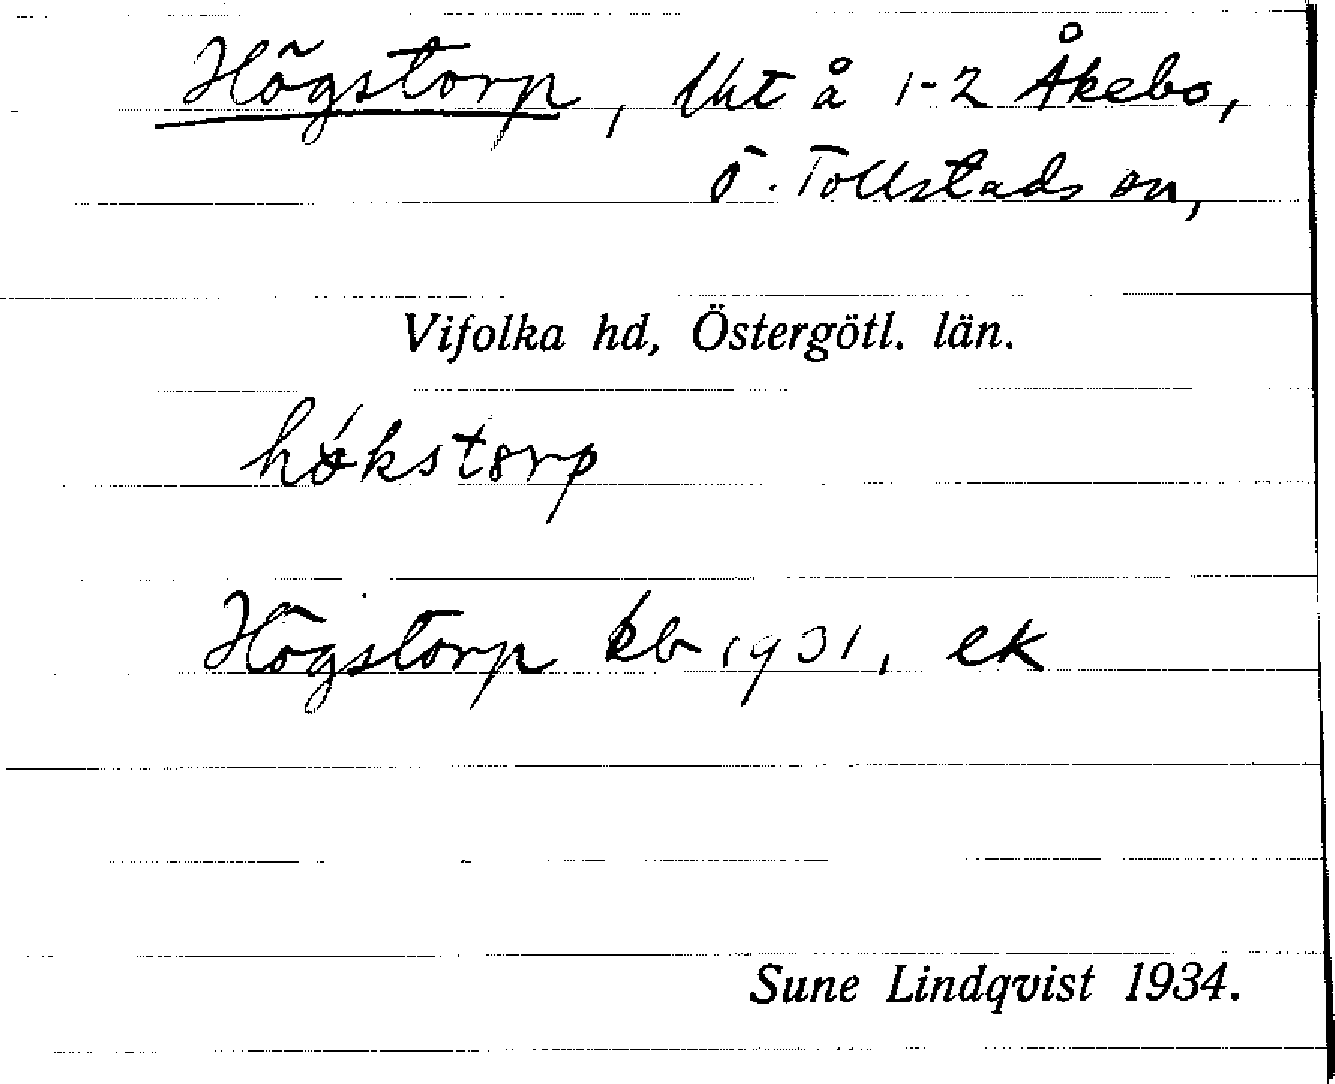 Högstorp, Uht å 1-2 Åkebo,
Ö. Tollstads sn,
Vifolka hd, Östergötl. län.
hǿkstorp
Högstorp kb 1931, ek
Sune Lindqvist 1934.